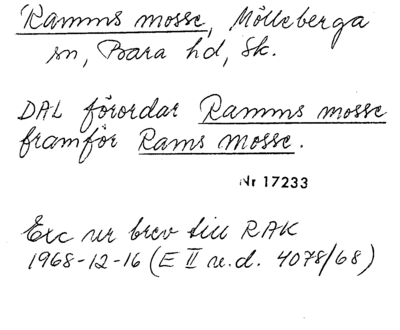 Ramms mosse, Mölleberga
sn, Bara hd, Sk.
DAL förordar Ramms mosse
framför Rams mosse.
Nr 17233
Exc ur brev till RAK
1968-12-16 (E II u.d. 4078/68)